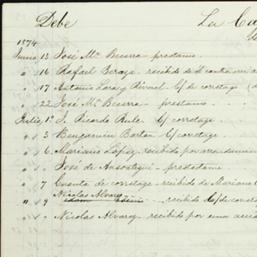 Debe La Ca
1874
Junio 13 José Ma. Becerra - prestamo
" 16 Rafael Beraza - recibido de
" 17 Antonio Lara y c/ de corretage
" 22 José Ma. Becerra - prestamo
Julio 1º J. Ricardo Rule - c/ corretage
" 3 Benjamin Barton c/ corretage
" 6 Mariano Lopez - recibido por
" " José de Ansoategui - prestatome
" 7 Cuenta de corretage - recibido de Mariano
Nicolas Alvarez
" 9 - recibido c/ de
" " Nicolas Alvarez - recibido por una